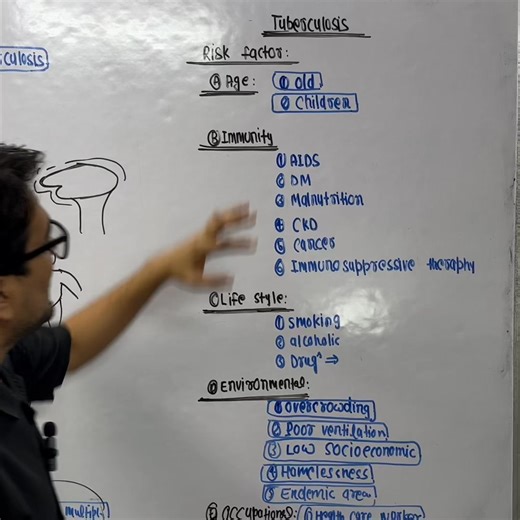 Tuberculosis
culosis
Risk factor:
Ⓐ Age: ① old
② Children
Ⓑ Immunity
① AIDS
② DM
③ Malnutrition
④ CKD
⑤ cancer
⑥ Immuno suppressive therapy
Ⓒ Life style:
① smoking
② alcoholic
③ Drug^ ⇒
Ⓓ Environmental:
① overcrowding
② Poor ventilation
③ Low socioeconomic
④ Homelessness
⑤ Endemic area
Ⓔ Occupational: ① Health care worker
multipl